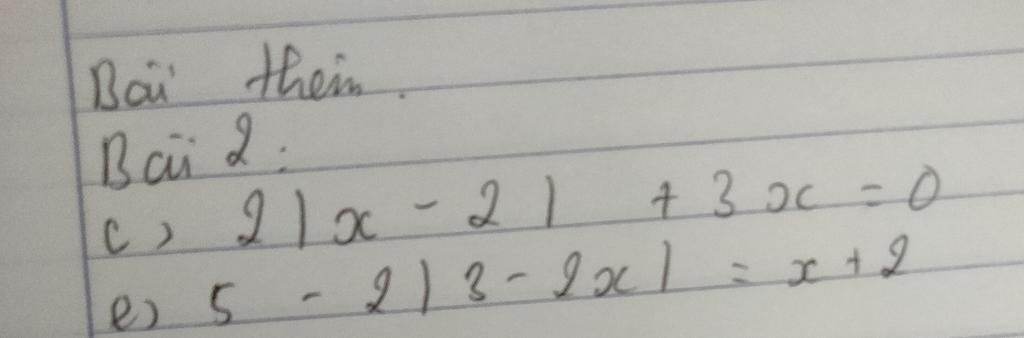 Bài thêm.
Bài 2:
c) 2|x - 2| + 3x = 0
e) 5 - 2|3 - 2x| = x + 2